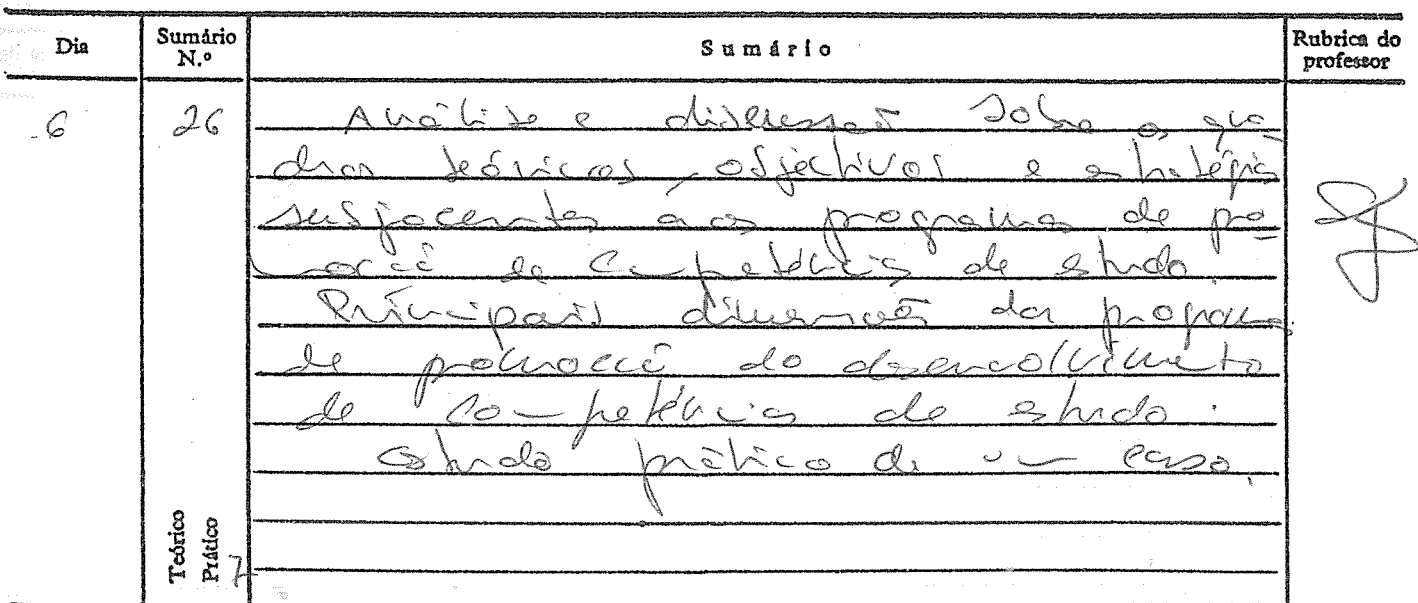 Dia Sumário N.º Sumário Rubrica do professor
6 26 Análise e discussão sobre os qua-
dros teóricos, objectivos e estratégias
subjacentes aos programas de pro-
moção de competências de estudo.
Principais dimensões dos programas
de promoção do desenvolvimento
de competências de estudo.
Estudo prático de um caso.
Teórico
Prático